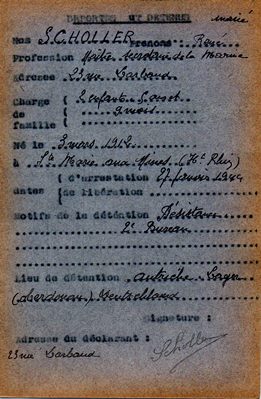 DEPORTES ET DETENUS
marié
Nom SCHOLLER Prénoms : René
Profession Maître de la Marine
Adresse 23 rue Barbaud
Charge ( 2 enfants
de (
famille (
Né le 3 mars 1912
à Ste Marie aux Mines (Ht Rhin)
dates (d'arrestation 27 février 1944
(de libération
Motifs de la détention Résistance
2e Bureau
Lieu de détention Autriche
Deutschland
Signature :
Adresse du déclarant :
23 rue Barbaud Scholler